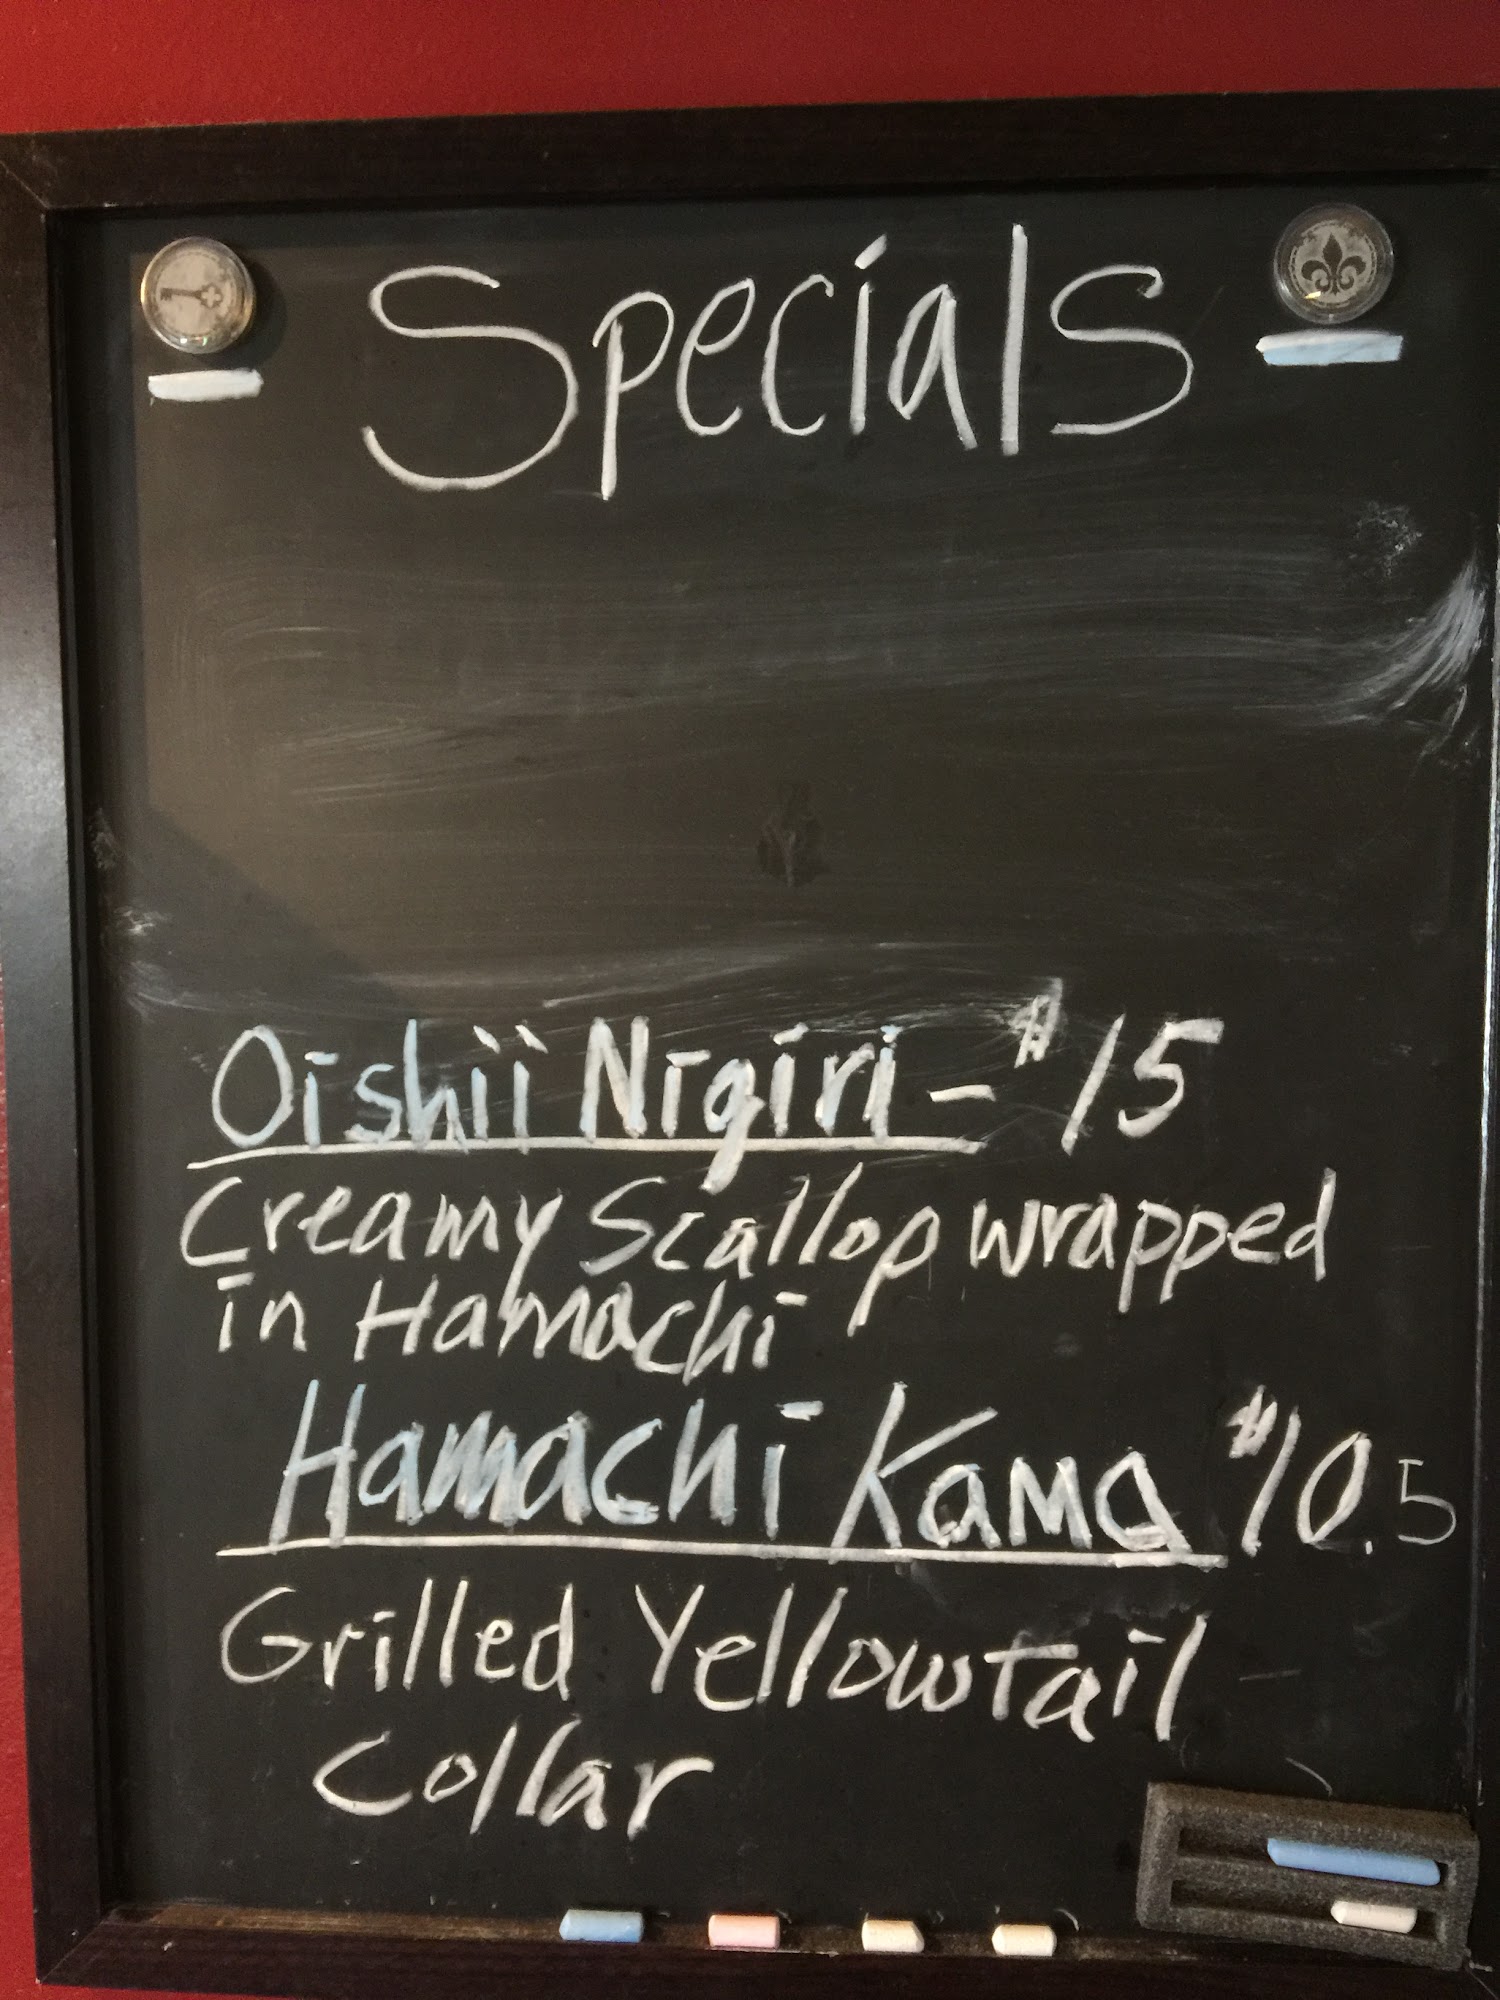 Specials
Oishii Nigiri - $15
Creamy Scallop wrapped
in Hamachi
Hamachi Kama $10.5
Grilled Yellowtail
Collar